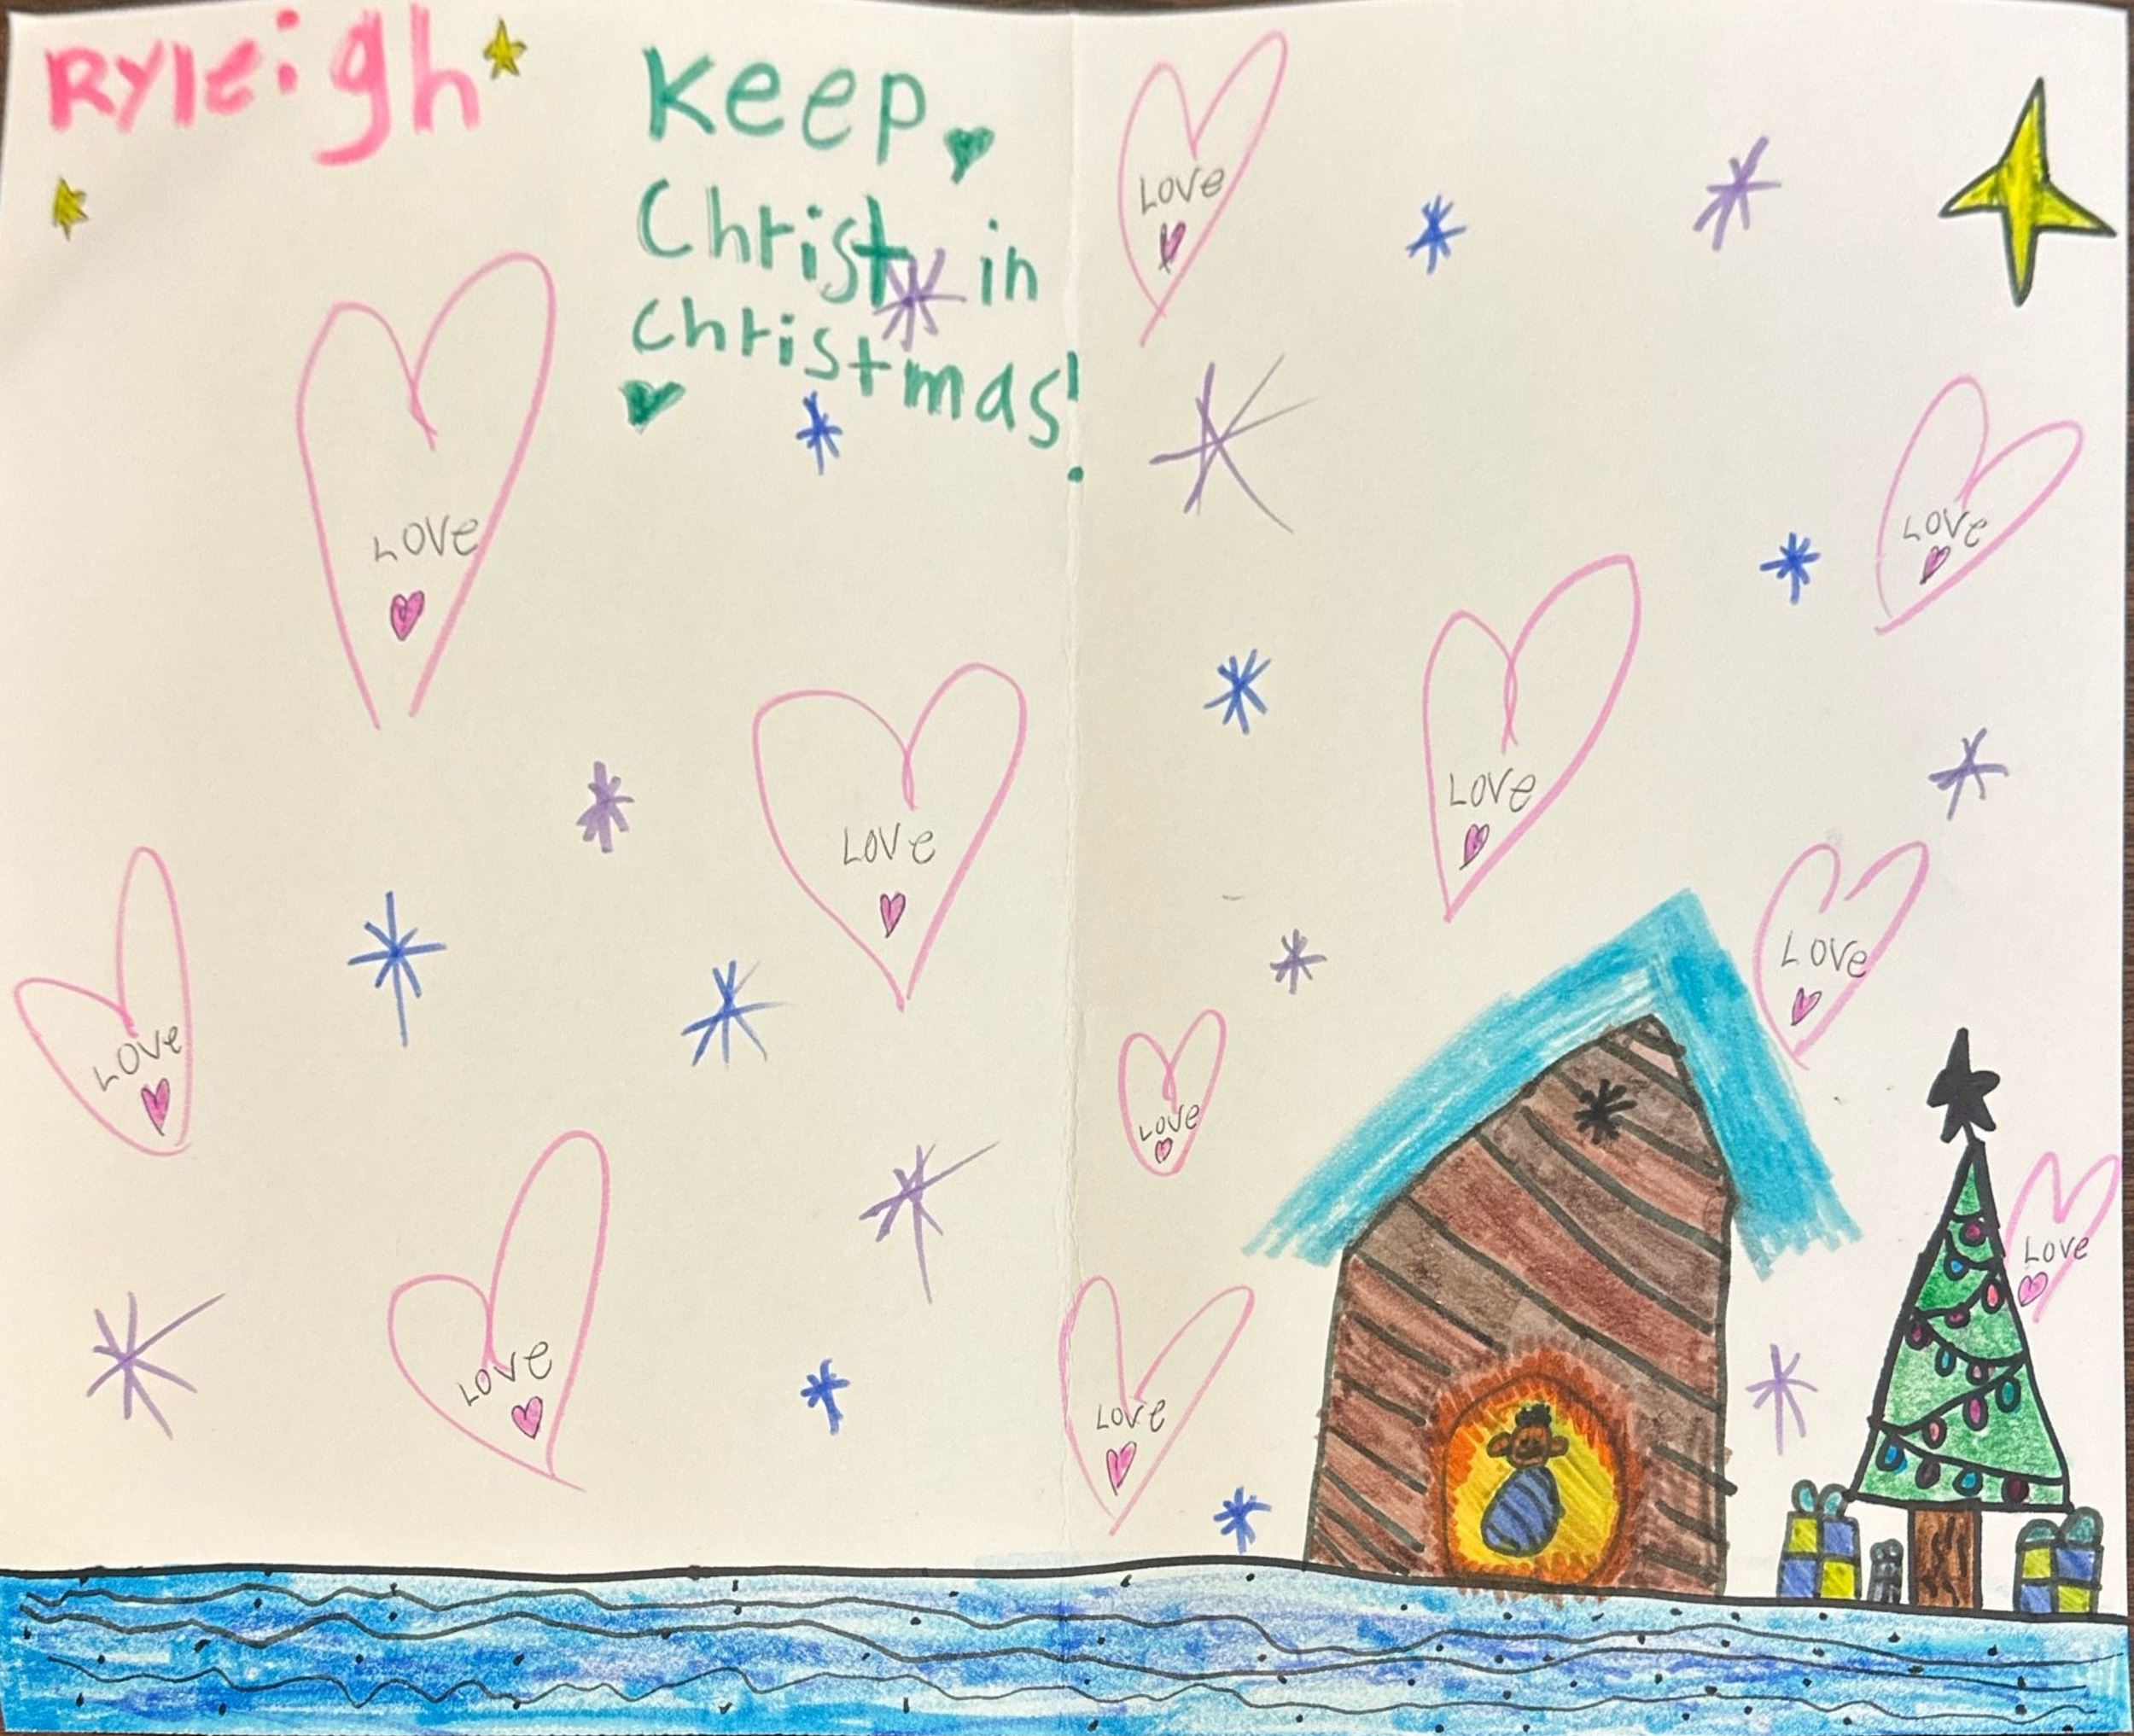 Ryleigh
Keep
Christ in
Christmas!
Love
Love
Love
Love
Love
Love
Love
Love
Love
Love
Love